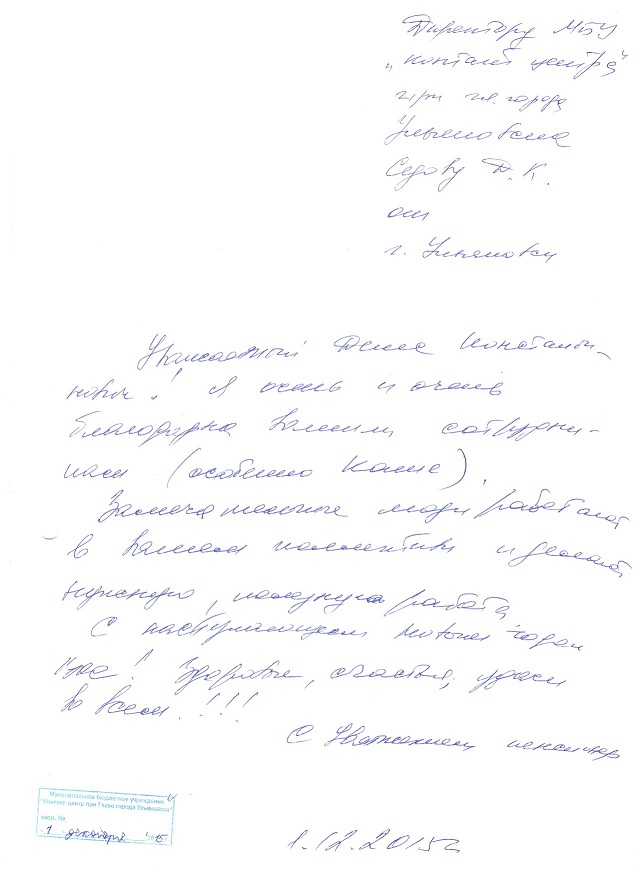 Директору МБУ
"Контакт центра"
при гл. города
Ульяновска
Седову Д. К.
от
г. Ульяновск
Уважаемый Денис Константи-
нович! Я очень и очень
благодарна Вашим сотрудни-
кам (особенно Кате).
Замечательные люди работают
в Вашем коллективе и делают
нужную, полезную работу
С наступающим Новым годом
Вас! Здоровья, счастья, удачи
во всем!!!
С уважением пенсионер
Муниципальное бюджетное учреждение
"Контакт-центр при Главе города Ульяновска"
вход. №
1 декабря 2015
1.12.2015г